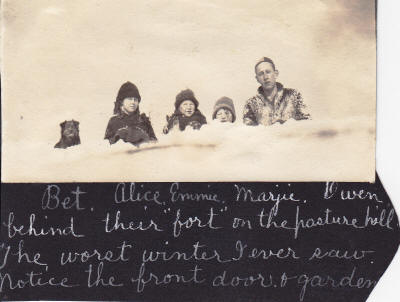 Bet. Alice, Emmie, Marjie. Owen
behind their "fort" on the pasture hill
The worst winter I ever saw.
Notice the front door & garden